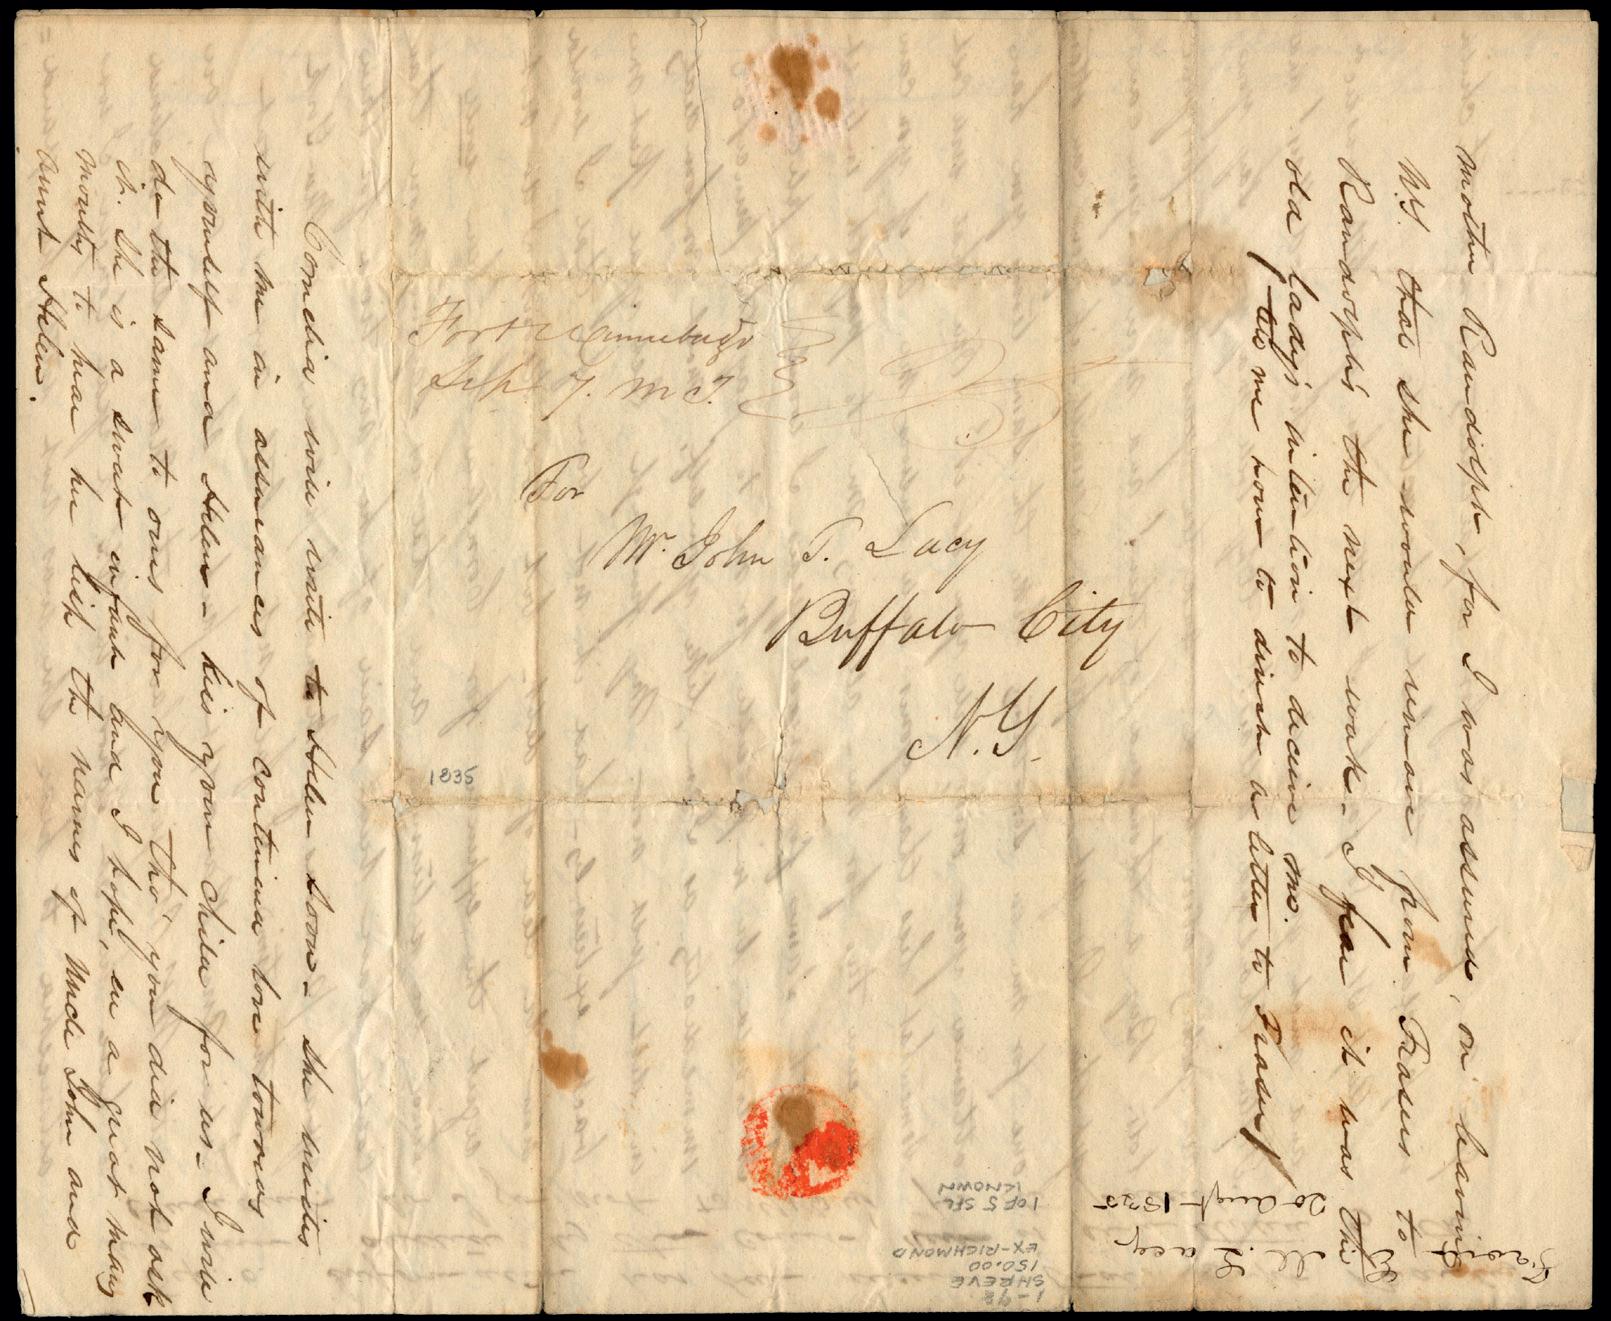 mother Randolph, for I was assured, on leaving
N.Y. that she would remove from Frasers to
Randolphs the next week. I fear it was the
old lady's intention to deceive me.
tell me how to direct a letter to Fraser
Fort Winnebago
Sep. 7. M. T.
For
Mr. John T. Lacy
Buffalo City
N.Y.
1835
Cornelia will write to Helen soon. She unites
with me in assurances of continued love towards
yourself and Helen. kiss your child for us. I will
do the same to ours for you, tho' you did not ask
it. She is a sweet infant and I hope, in a great many
months to hear her lisp the names of Uncle John and
Aunt Helen.
Lacy
20 Augt 1835
1-98
SHREVE
150.00
EX-RICHMOND
1 OF 5 SFL
KNOWN